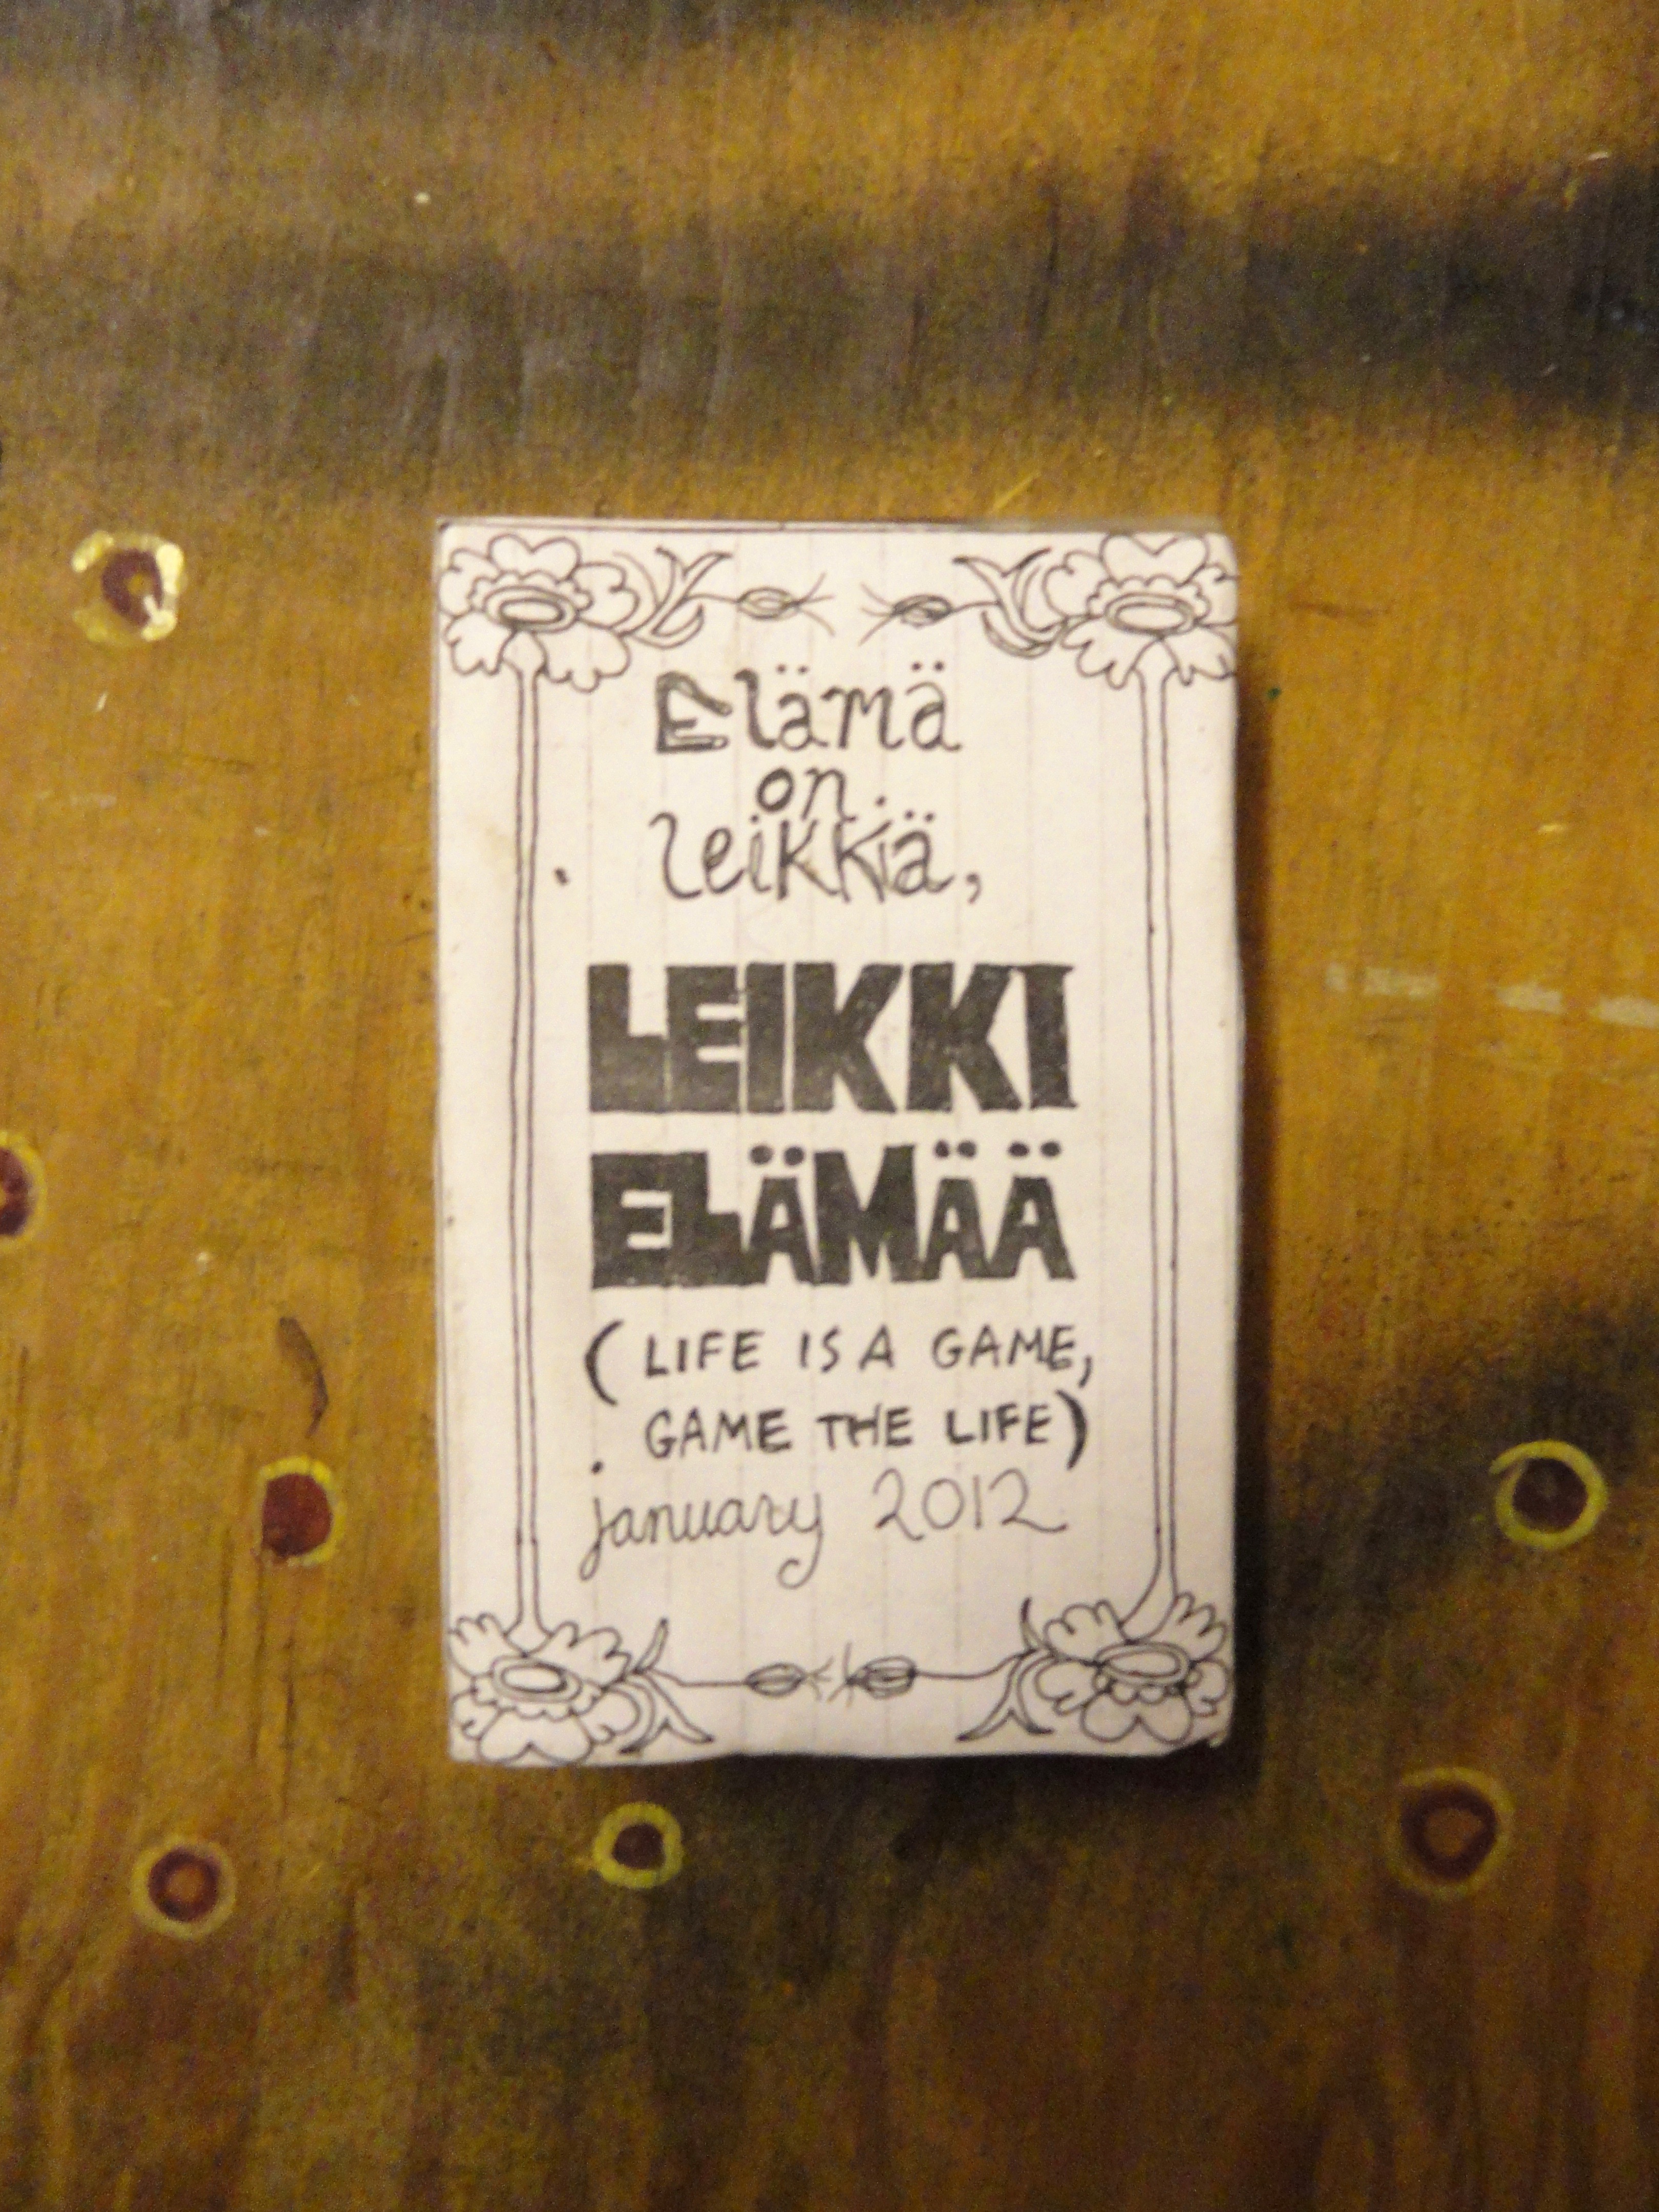 Elämä
on
leikkiä,
LEIKKI
ELÄMÄÄ
(LIFE IS A GAME,
GAME THE LIFE)
january 2012